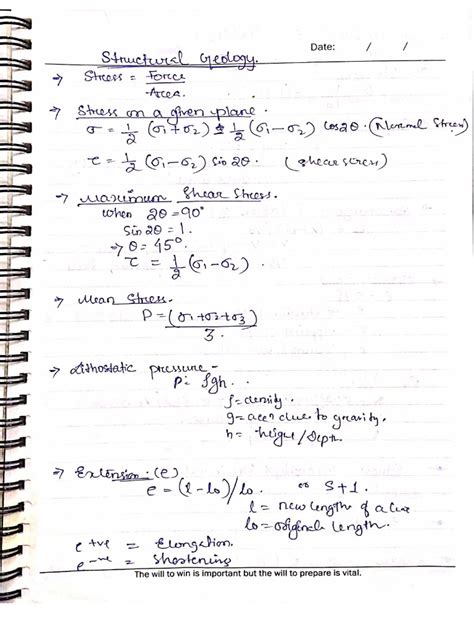 Date: / /
Structural Geology.
→ Stress = Force
Area.
→ Stress on a given plane.
σ = 1/2 (σ1+σ2) ± 1/2 (σ1-σ2) cos2θ. (Normal Stress)
τ = 1/2 (σ1-σ2) sin 2θ. (shear stress)
→ Maximum Shear Stress.
when 2θ = 90°
Sin 2θ = 1.
→ θ = 45°.
τ = 1/2 (σ1-σ2).
→ Mean Stress.
P = (σ1+σ2+σ3)
3.
→ Lithostatic pressure -
P = ρgh.
ρ = density.
g = accn due to gravity.
h = height/Depth.
→ Extension (e)
e = (l - lo)/lo. or S+1.
l = new length of a line
lo = original length.
e +ve = Elongation.
e -ve = Shortening
The will to win is important but the will to prepare is vital.